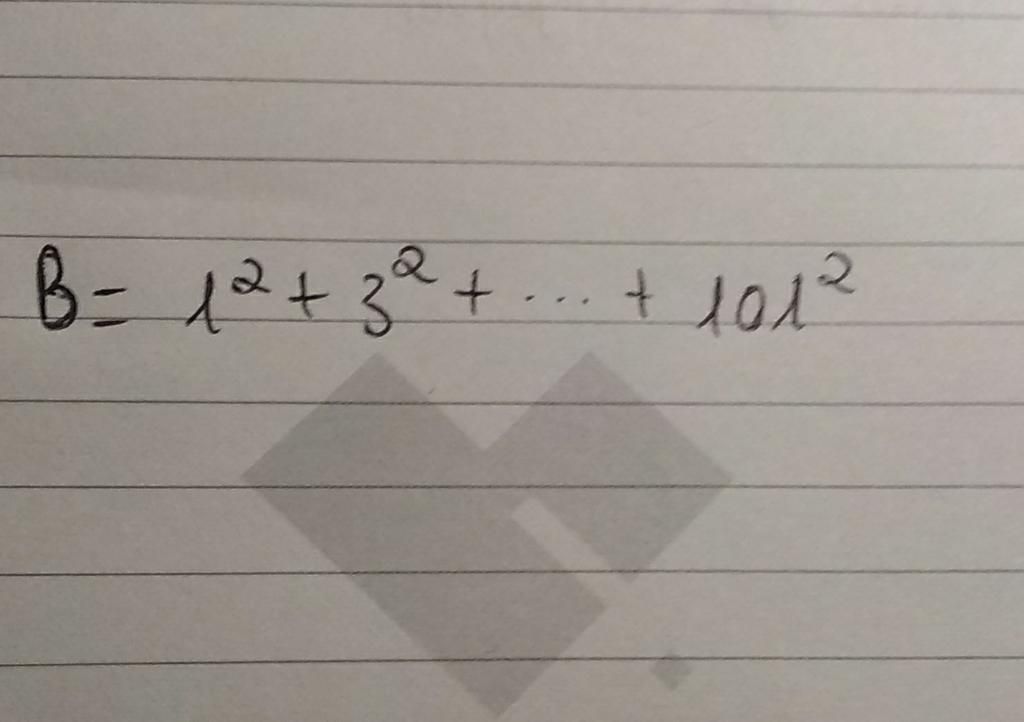 B = 1² + 3² + ... + 101²